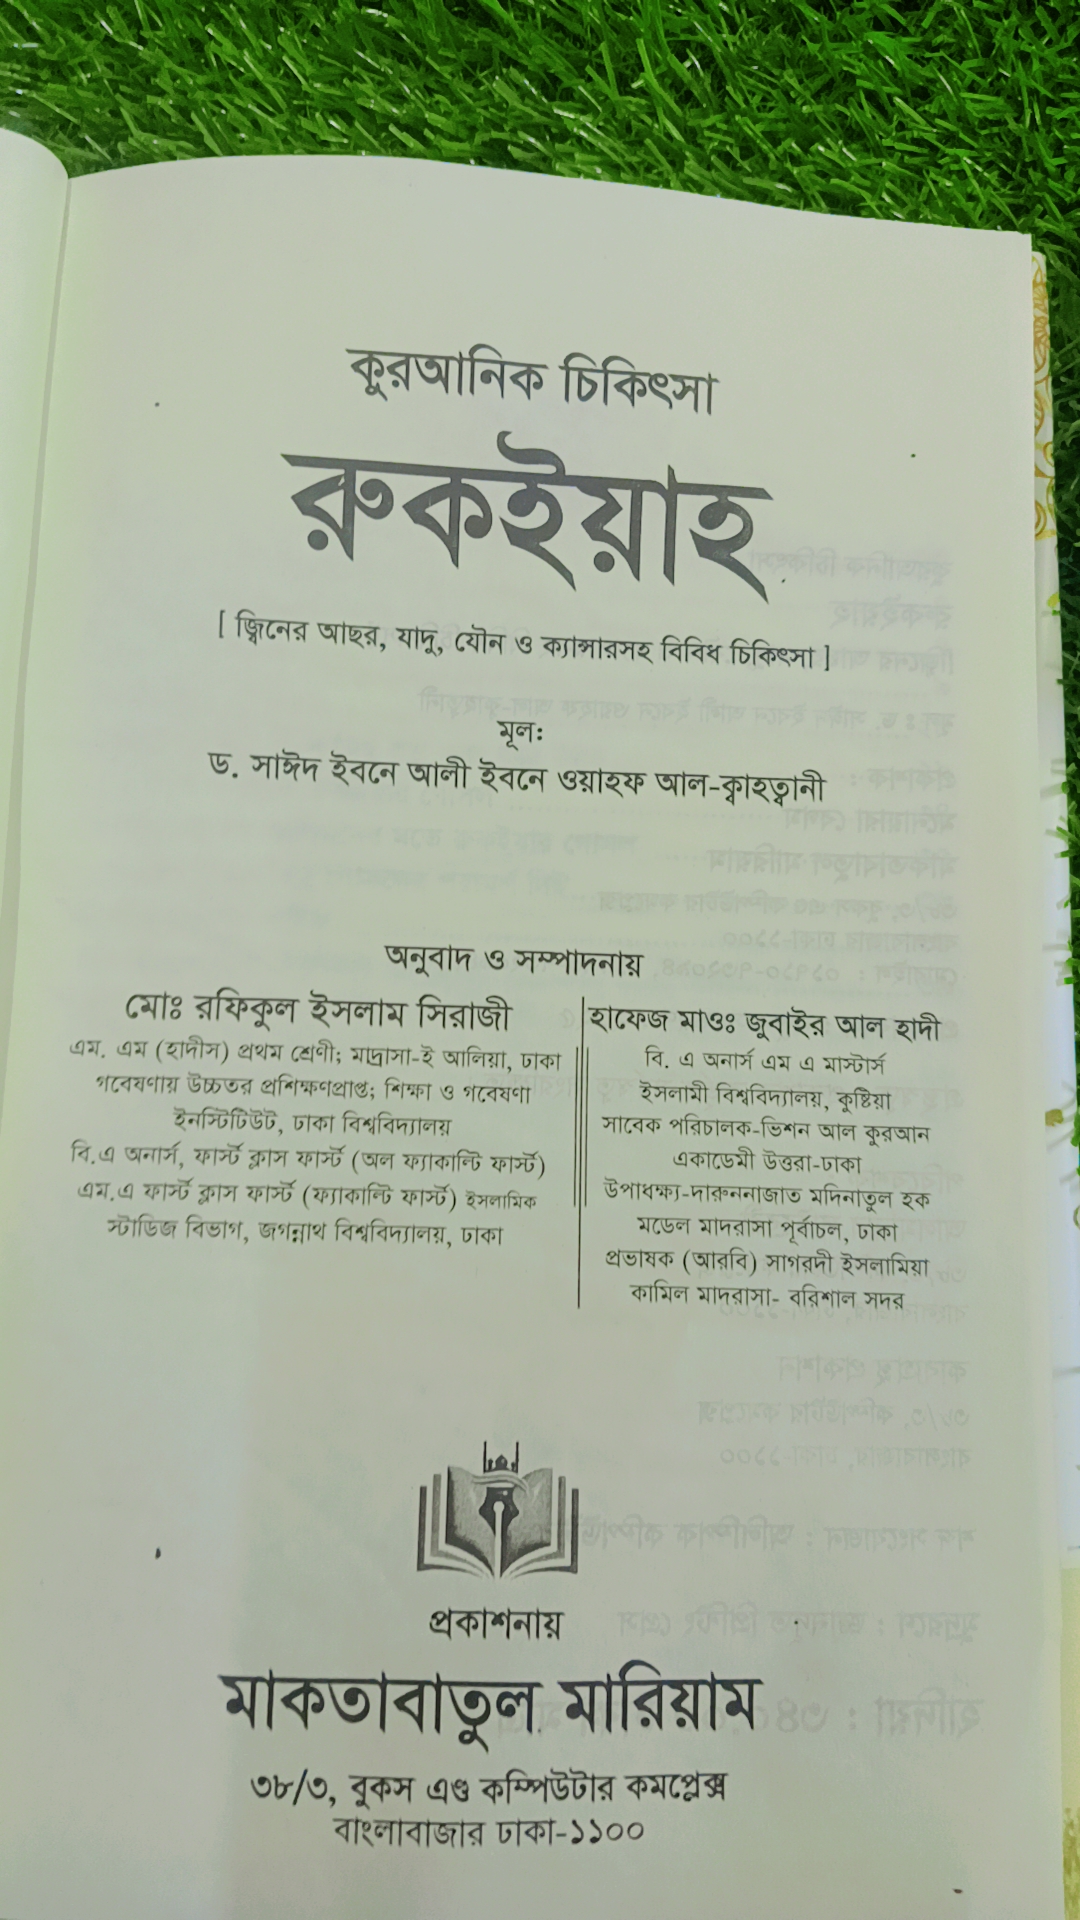 কুরআনিক চিকিৎসা
রুকইয়াহ
[ জ্বিনের আছর, যাদু, যৌন ও ক্যান্সারসহ বিবিধ চিকিৎসা ]
মূল:
ড. সাঈদ ইবনে আলী ইবনে ওয়াহফ আল-ক্বাহত্বানী
অনুবাদ ও সম্পাদনায়
মোঃ রফিকুল ইসলাম সিরাজী
এম. এম (হাদীস) প্রথম শ্রেণী; মাদ্রাসা-ই আলিয়া, ঢাকা
গবেষণায় উচ্চতর প্রশিক্ষণপ্রাপ্ত; শিক্ষা ও গবেষণা
ইনস্টিটিউট, ঢাকা বিশ্ববিদ্যালয়
বি.এ অনার্স, ফার্স্ট ক্লাস ফার্স্ট (অল ফ্যাকাল্টি ফার্স্ট)
এম.এ ফার্স্ট ক্লাস ফার্স্ট (ফ্যাকাল্টি ফার্স্ট) ইসলামিক
স্টাডিজ বিভাগ, জগন্নাথ বিশ্ববিদ্যালয়, ঢাকা
হাফেজ মাওঃ জুবাইর আল হাদী
বি. এ অনার্স এম এ মাস্টার্স
ইসলামী বিশ্ববিদ্যালয়, কুষ্টিয়া
সাবেক পরিচালক-ভিশন আল কুরআন
একাডেমী উত্তরা-ঢাকা
উপাধক্ষ্য-দারুননাজাত মদিনাতুল হক
মডেল মাদরাসা পূর্বাচল, ঢাকা
প্রভাষক (আরবি) সাগরদী ইসলামিয়া
কামিল মাদরাসা- বরিশাল সদর
প্রকাশনায়
মাকতাবাতুল মারিয়াম
৩৮/৩, বুকস এণ্ড কম্পিউটার কমপ্লেক্স
বাংলাবাজার ঢাকা-১১০০